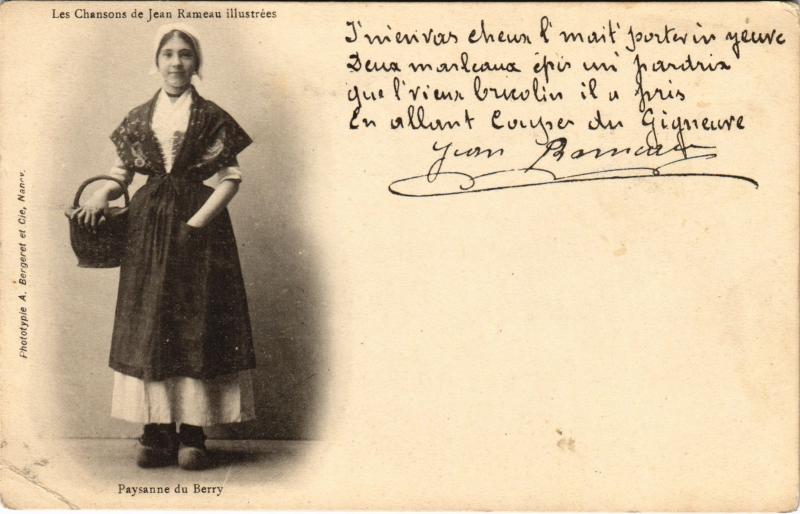 Les Chansons de Jean Rameau illustrées
J'm'envas cheux l'mait' porter in yeuve
Deux marleaux épis un pardrix
que l'vieux bricolin il a pris
En allant couper du Gigneuve
Jean Rameau
Phototypie A. Bergeret et Cie, Nancy.
Paysanne du Berry